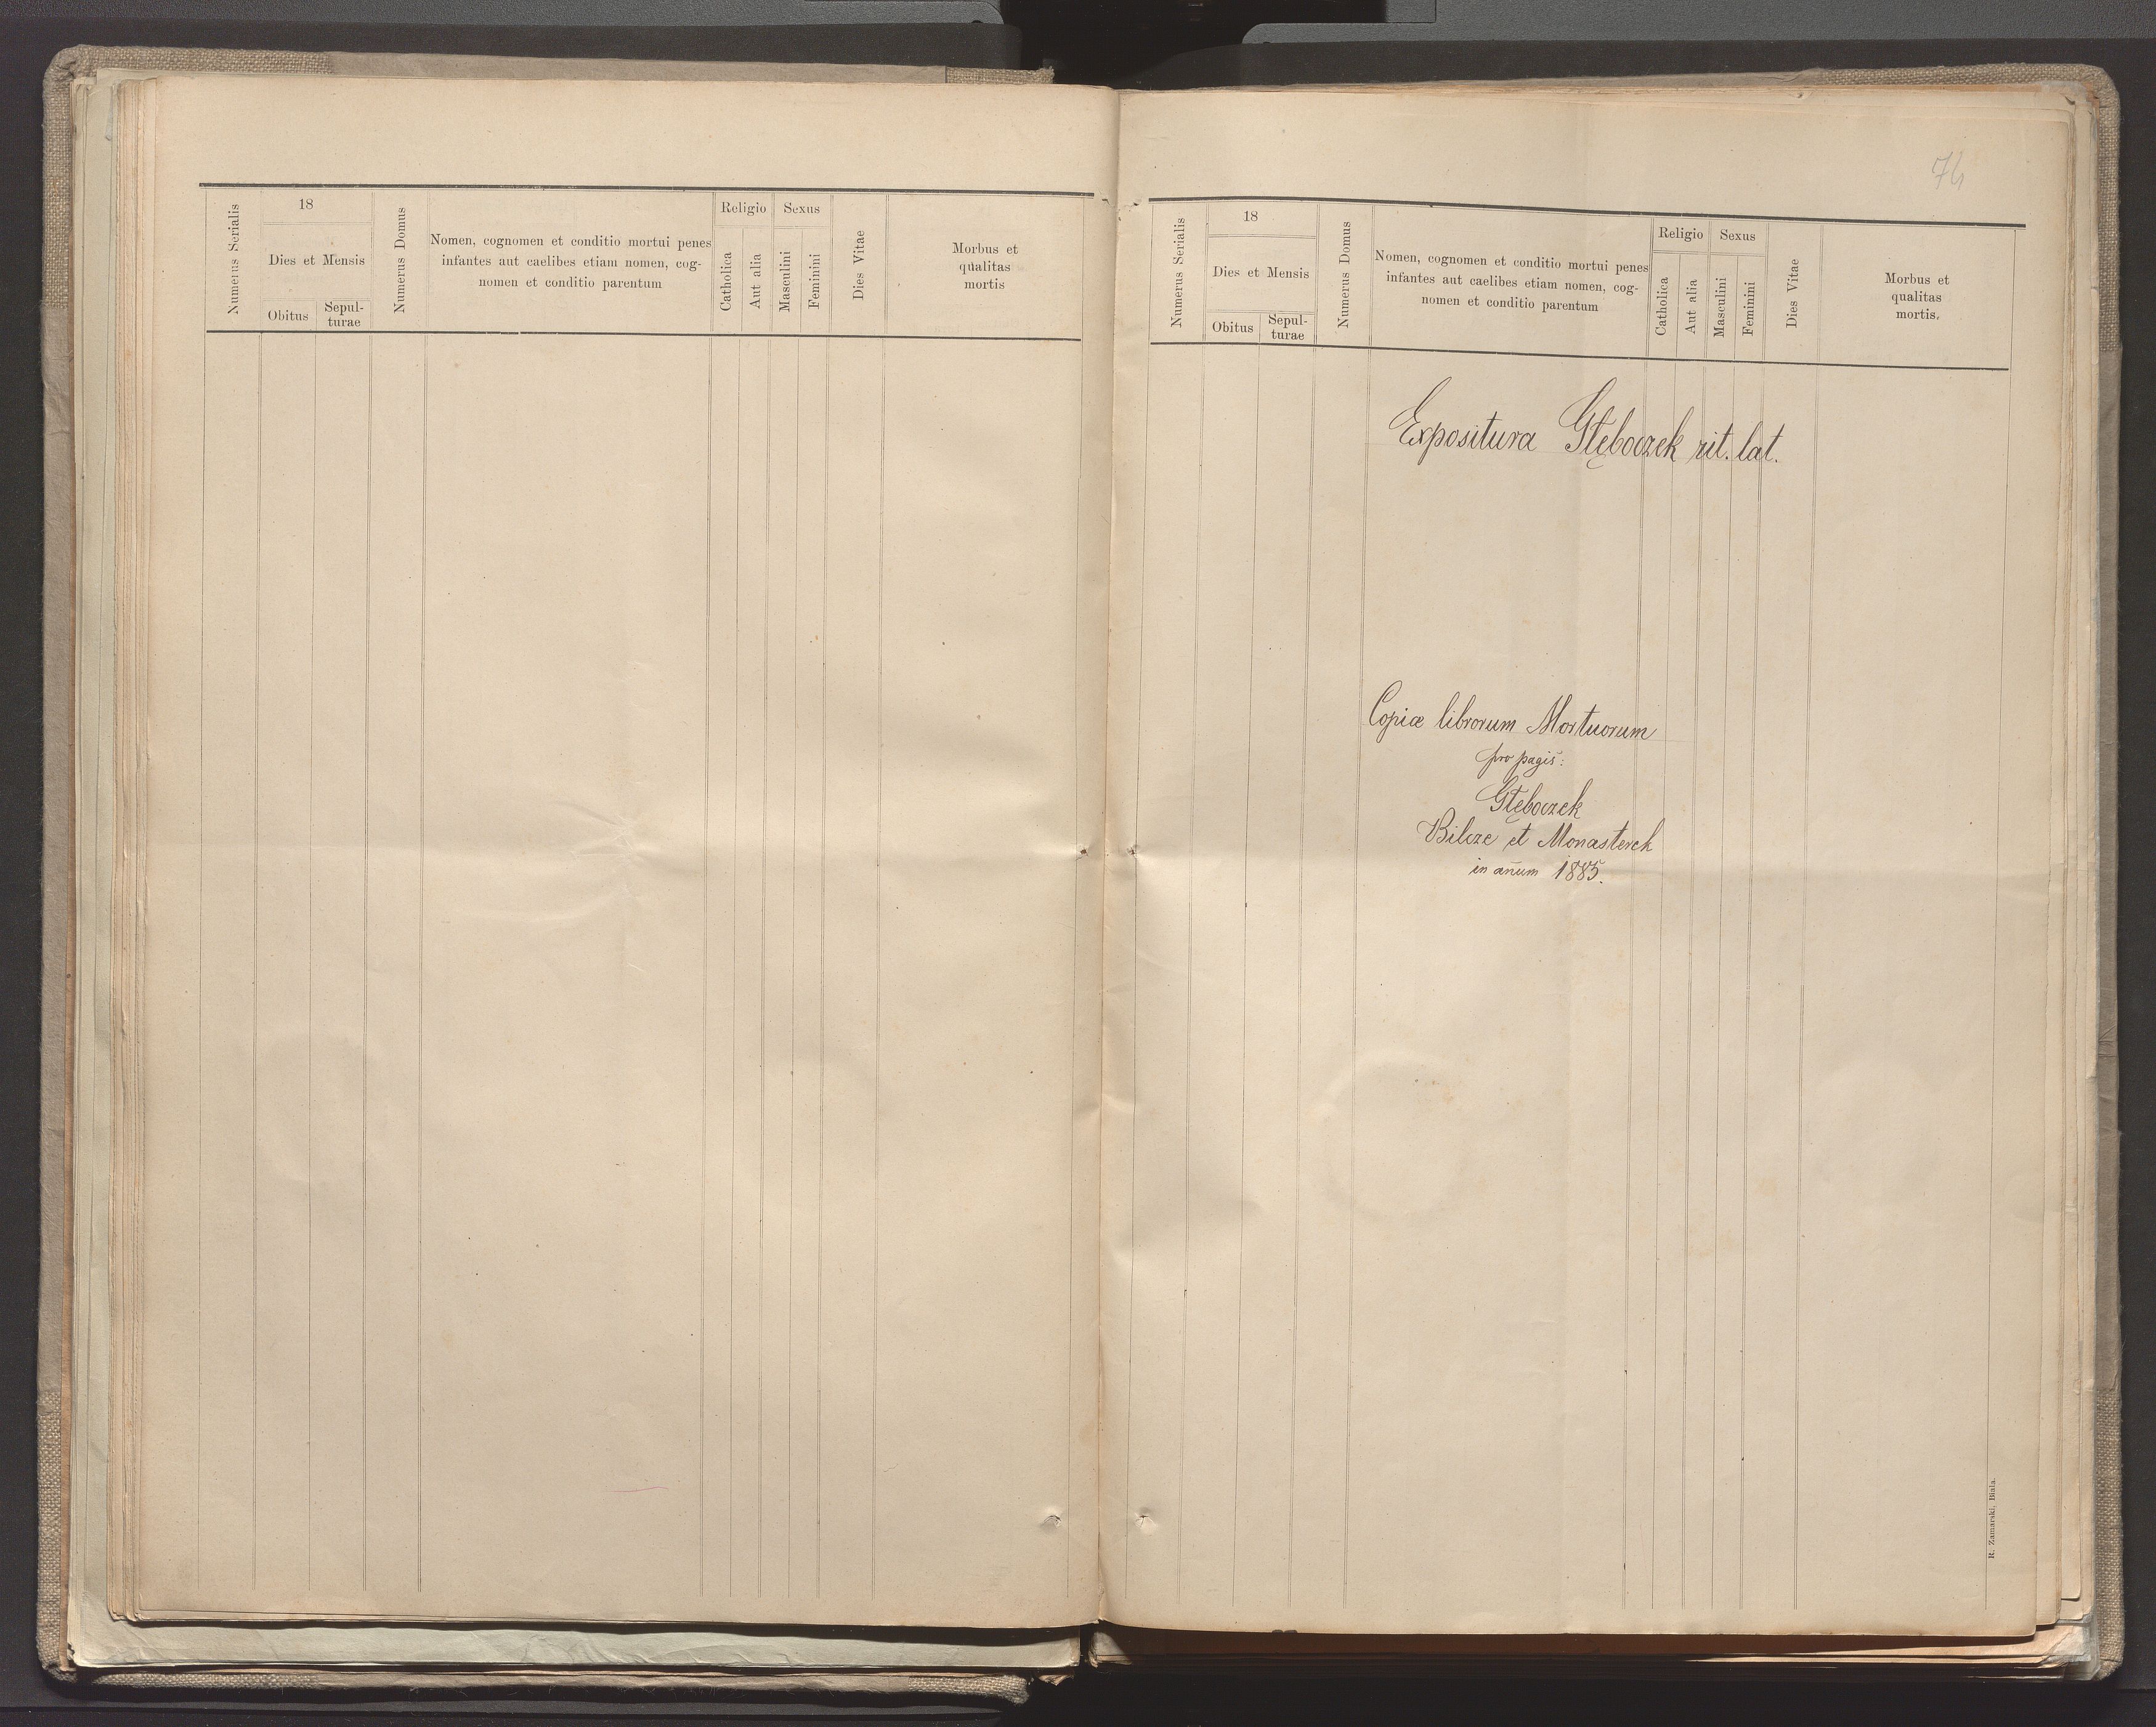 Numerus Serialis
18
Dies et Mensis
Obitus
Sepul-
turae
Numerus Domus
Nomen, cognomen et conditio mortui penes
infantes aut caelibes etiam nomen, cog-
nomen et conditio parentum
Religio
Catholica
Aut alia
Sexus
Masculini
Feminini
Dies Vitae
Morbus et
qualitas
mortis
74
Numerus Serialis
18
Dies et Mensis
Obitus
Sepul-
turae
Numerus Domus
Nomen, cognomen et conditio mortui penes
infantes aut caelibes etiam nomen, cog-
nomen et conditio parentum
Religio
Catholica
Aut alia
Sexus
Masculini
Feminini
Dies Vitae
Morbus et
qualitas
mortis.
Expositura Głęboczek rit. lat.
Copiæ librorum Mortuorum
pro pagis:
Głęboczek
Bilcze et Monasterek
in añum 1885.
R. Zamarski, Biala.